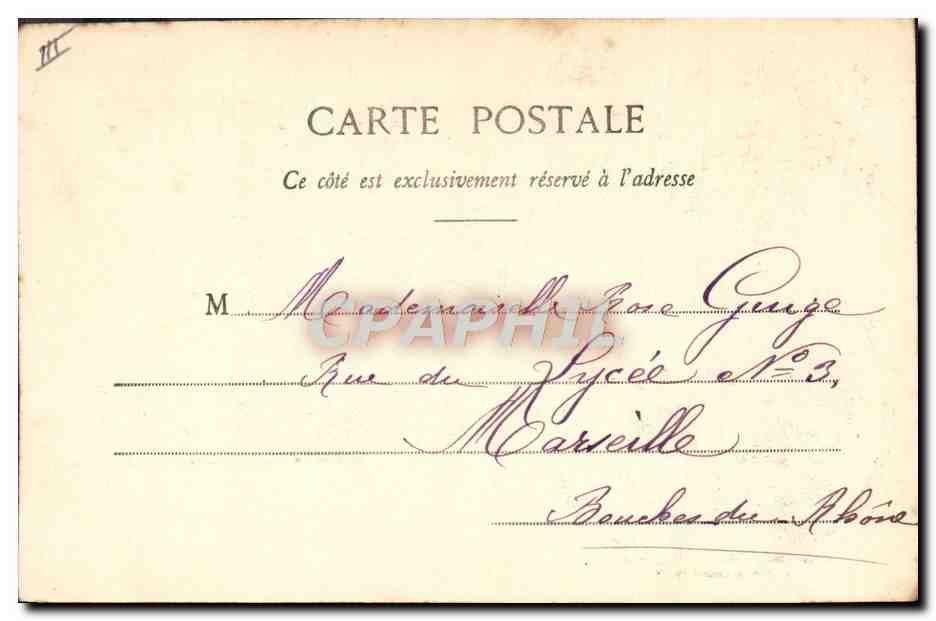 III
CARTE POSTALE
Ce côté est exclusivement réservé à l'adresse
M Mademoiselle Rose
Rue du Lycée No 3,
Marseille
Bouches du Rhône
CPAPHIL